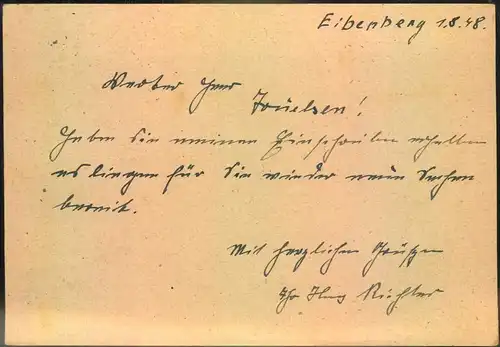 Eibenberg 1.8.48.
Werter Herr
Truelsen!
Haben Sie meinen Einschreiben erhalten
es liegen für Sie wieder neue Sachen
bereit.
Mit herzlichen Grüßen
Ihr Richter